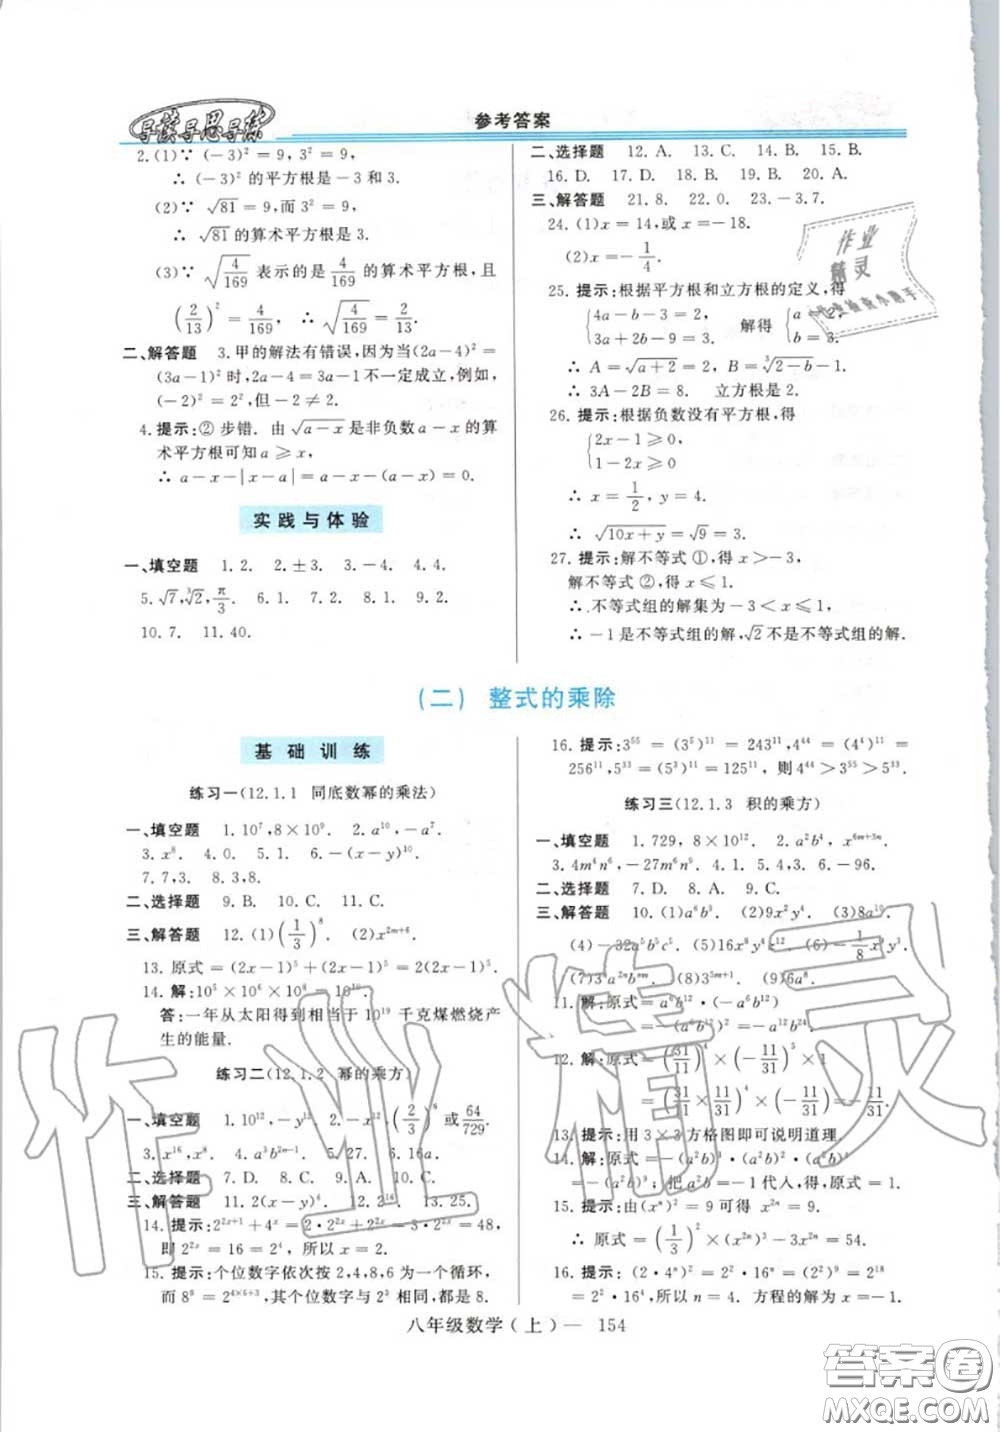 导读导思导练
参考答案
2.(1)∵ (－3)² = 9, 3² = 9,
∴ (－3)² 的平方根是－3 和 3.
(2)∵ √81 = 9,而 3² = 9,
∴ √81 的算术平方根是 3.
(3)∵ √(4/169) 表示的是 4/169 的算术平方根,且
(2/13)² = 4/169, ∴ √(4/169) = 2/13.
二、解答题 3.甲的解法有错误,因为当(2a－4)² =
(3a－1)² 时,2a－4 = 3a－1 不一定成立,例如,
(－2)² = 2²,但－2 ≠ 2.
4.提示:② 步错. 由 √(a－x) 是非负数 a－x 的算
术平方根可知 a ⩾ x,
∴ a－x－|x－a| = a－x－(a－x) = 0.
实践与体验
一、填空题 1.2. 2.±3. 3.－4. 4.4.
5.√7,³√2,π/3. 6.1. 7.2. 8.1. 9.2.
10.7. 11.40.
二、选择题 12.A. 13.C. 14.B. 15.B.
16.D. 17.D. 18.B. 19.B. 20.A.
三、解答题 21.8. 22.0. 23.－3,7.
24.(1)x = 14,或 x =－18.
(2)x =－1/4.
25.提示:根据平方根和立方根的定义,得
{4a－b－3 = 2, 3a＋2b－9 = 3, 解得 {a = 2, b = 3.
∴ A = √(a＋2) = 2, B = ³√(2－b)－1.
∴ 3A－2B = 8. 立方根是 2.
26.提示:根据负数没有平方根,得
{2x－1 ⩾ 0
1－2x ⩾ 0
∴ x = 1/2, y = 4.
∴ √(10x＋y) = √9 = 3.
27.提示:解不等式 ①,得 x ＞－3,
解不等式 ②,得 x ⩽ 1.
∴ 不等式组的解集为－3 ＜ x ⩽ 1.
∴ －1 是不等式组的解,√2 不是不等式组的解.
(二) 整式的乘除
基础训练
练习一(12.1.1 同底数幂的乘法)
一、填空题 1.10⁷,8×10⁹. 2.a¹⁰,－a⁷.
3.x⁸. 4.0. 5.1. 6.－(x－y)¹⁰.
7.7,3. 8.3,8.
二、选择题 9.B. 10.C. 11.C.
三、解答题 12.(1)(1/3)⁸ (2)x²ᵐ⁺⁶
13.原式 = (2x－1)⁵＋(2x－1)⁵ = 2(2x－1)⁵.
14.解:10⁵×10⁶×10⁸ = 10¹⁹.
答:一年从太阳得到相当于 10¹⁹ 千克煤燃烧产
生的能量.
练习二(12.1.2 幂的乘方)
一、填空题 1.10¹²,－y⁶. 2.－x⁶,(2/3)⁶ 或 64/729.
3.x¹⁶,x⁸. 4.a³b²ᵐ⁻¹. 5.27. 6.16a.
二、选择题 7.D. 8.D. 9.A. 10.C.
三、解答题 11.2(x－y)⁶. 12.2¹⁶. 13.25.
14.提示:2²ˣ⁺¹＋4ˣ = 2·2²ˣ＋2²ˣ = 3·2²ˣ = 48,
即 2²ˣ = 16 = 2⁴, 所以 x = 2.
15.提示:个位数字依次按 2,4,8,6 为一个循环,
而 8⁹ = 2⁴ˣ⁶⁺³,其个位数字与 2³ 相同,都是 8.
16.提示:3⁵⁵ = (3⁵)¹¹ = 243¹¹,4⁴⁴ = (4⁴)¹¹ =
256¹¹,5³³ = (5³)¹¹ = 125¹¹, 则 4⁴⁴ ＞ 3⁵⁵ ＞ 5³³.
练习三(12.1.3 积的乘方)
一、填空题 1.729, 8×10¹². 2.a²b⁴, x⁶ᵐ⁺³ⁿ
3.4m⁴n⁶,－27m⁶n⁹. 4.1. 5.4. 6.－96.
二、选择题 7.D. 8.A. 9.C.
三、解答题 10.(1)a⁶b³. (2)9x²y⁴. (3)8a¹⁹.
(4)－32a⁵b⁵c⁵. (5)16x⁸y⁴z¹². (6)－1/8 x⁶y³.
(7)3ᵐa²ⁿbᵐ. (8)3⁵ᵐ⁺¹. (9)6a⁸.
11.解:原式 = a⁶b¹²·(－a⁶b¹²)
= －(a⁶b¹²)² = －a¹²b²⁴.
12.解:原式 = (31/11)⁴×(－11/31)⁵×1
= (31/11)⁴×(－11/31)⁴×(－11/31) = －11/31.
13.提示:用 3×3 方格图即可说明道理.
14.解:原式 = －(a²b)³ = －(a²b)·(a²b)·(a²b)
= －(a²b)³; 把 a²b =－1 代人,得,原式 = 1.
15.提示:由(xⁿ)² = 9 可得 x²ⁿ = 9.
∴ 原式 = (1/3)²×(x²ⁿ)³－3x²ⁿ = 54.
16.提示: (2·4ⁿ)² = 2²·16ⁿ = (2⁹)² = 2¹⁸
= 2²·16⁴,所以 n = 4. 方程的解为 x = 1.
八年级数学(上)— 154
作业
精灵
作业精灵
答案圈
MXQE.COM